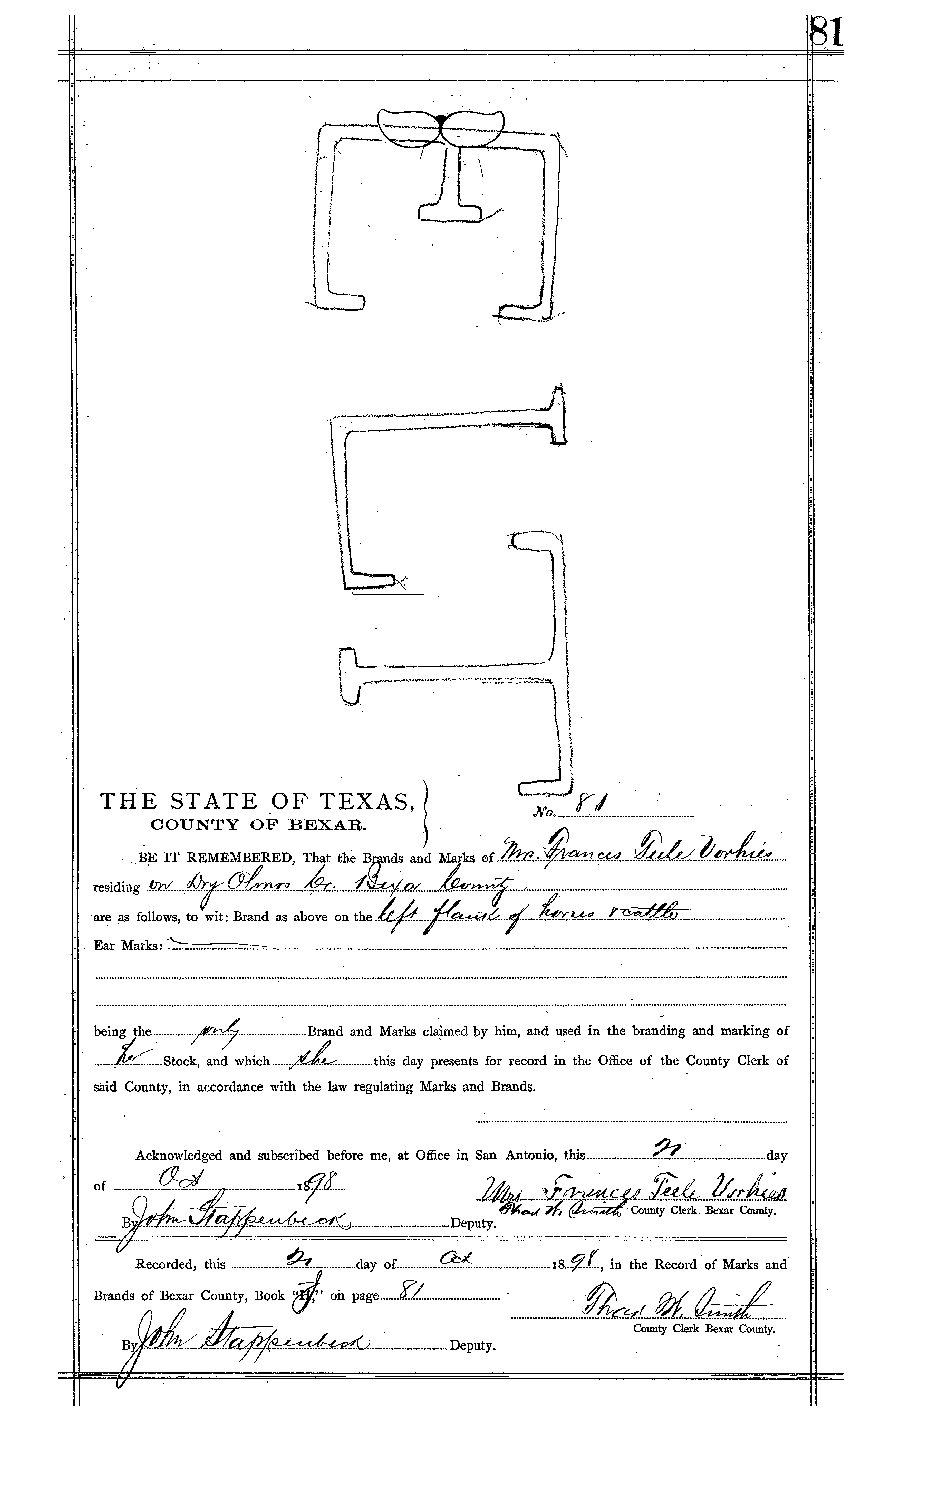 81
THE STATE OF TEXAS,
COUNTY OF BEXAR.
No. 81
BE IT REMEMBERED, That the Brands and Marks of Mrs. Frances Teele Vorhies
residing on Dry Olmos Cr. Bexa County
are as follows, to wit: Brand as above on the left flank of horses & cattle
Ear Marks:
being the only Brand and Marks claimed by him, and used in the branding and marking of
her Stock, and which she this day presents for record in the Office of the County Clerk of
said County, in accordance with the law regulating Marks and Brands.
Acknowledged and subscribed before me, at Office in San Antonio, this day
of Oct 1898 Mrs Frances Teele Vorhies
Thad W. Smith County Clerk Bexar County.
By John Stappenbeck Deputy.
Recorded, this day of Oct 1898, in the Record of Marks and
Brands of Bexar County, Book on page 81
Thad W. Smith
County Clerk Bexar County.
By John Stappenbeck Deputy.